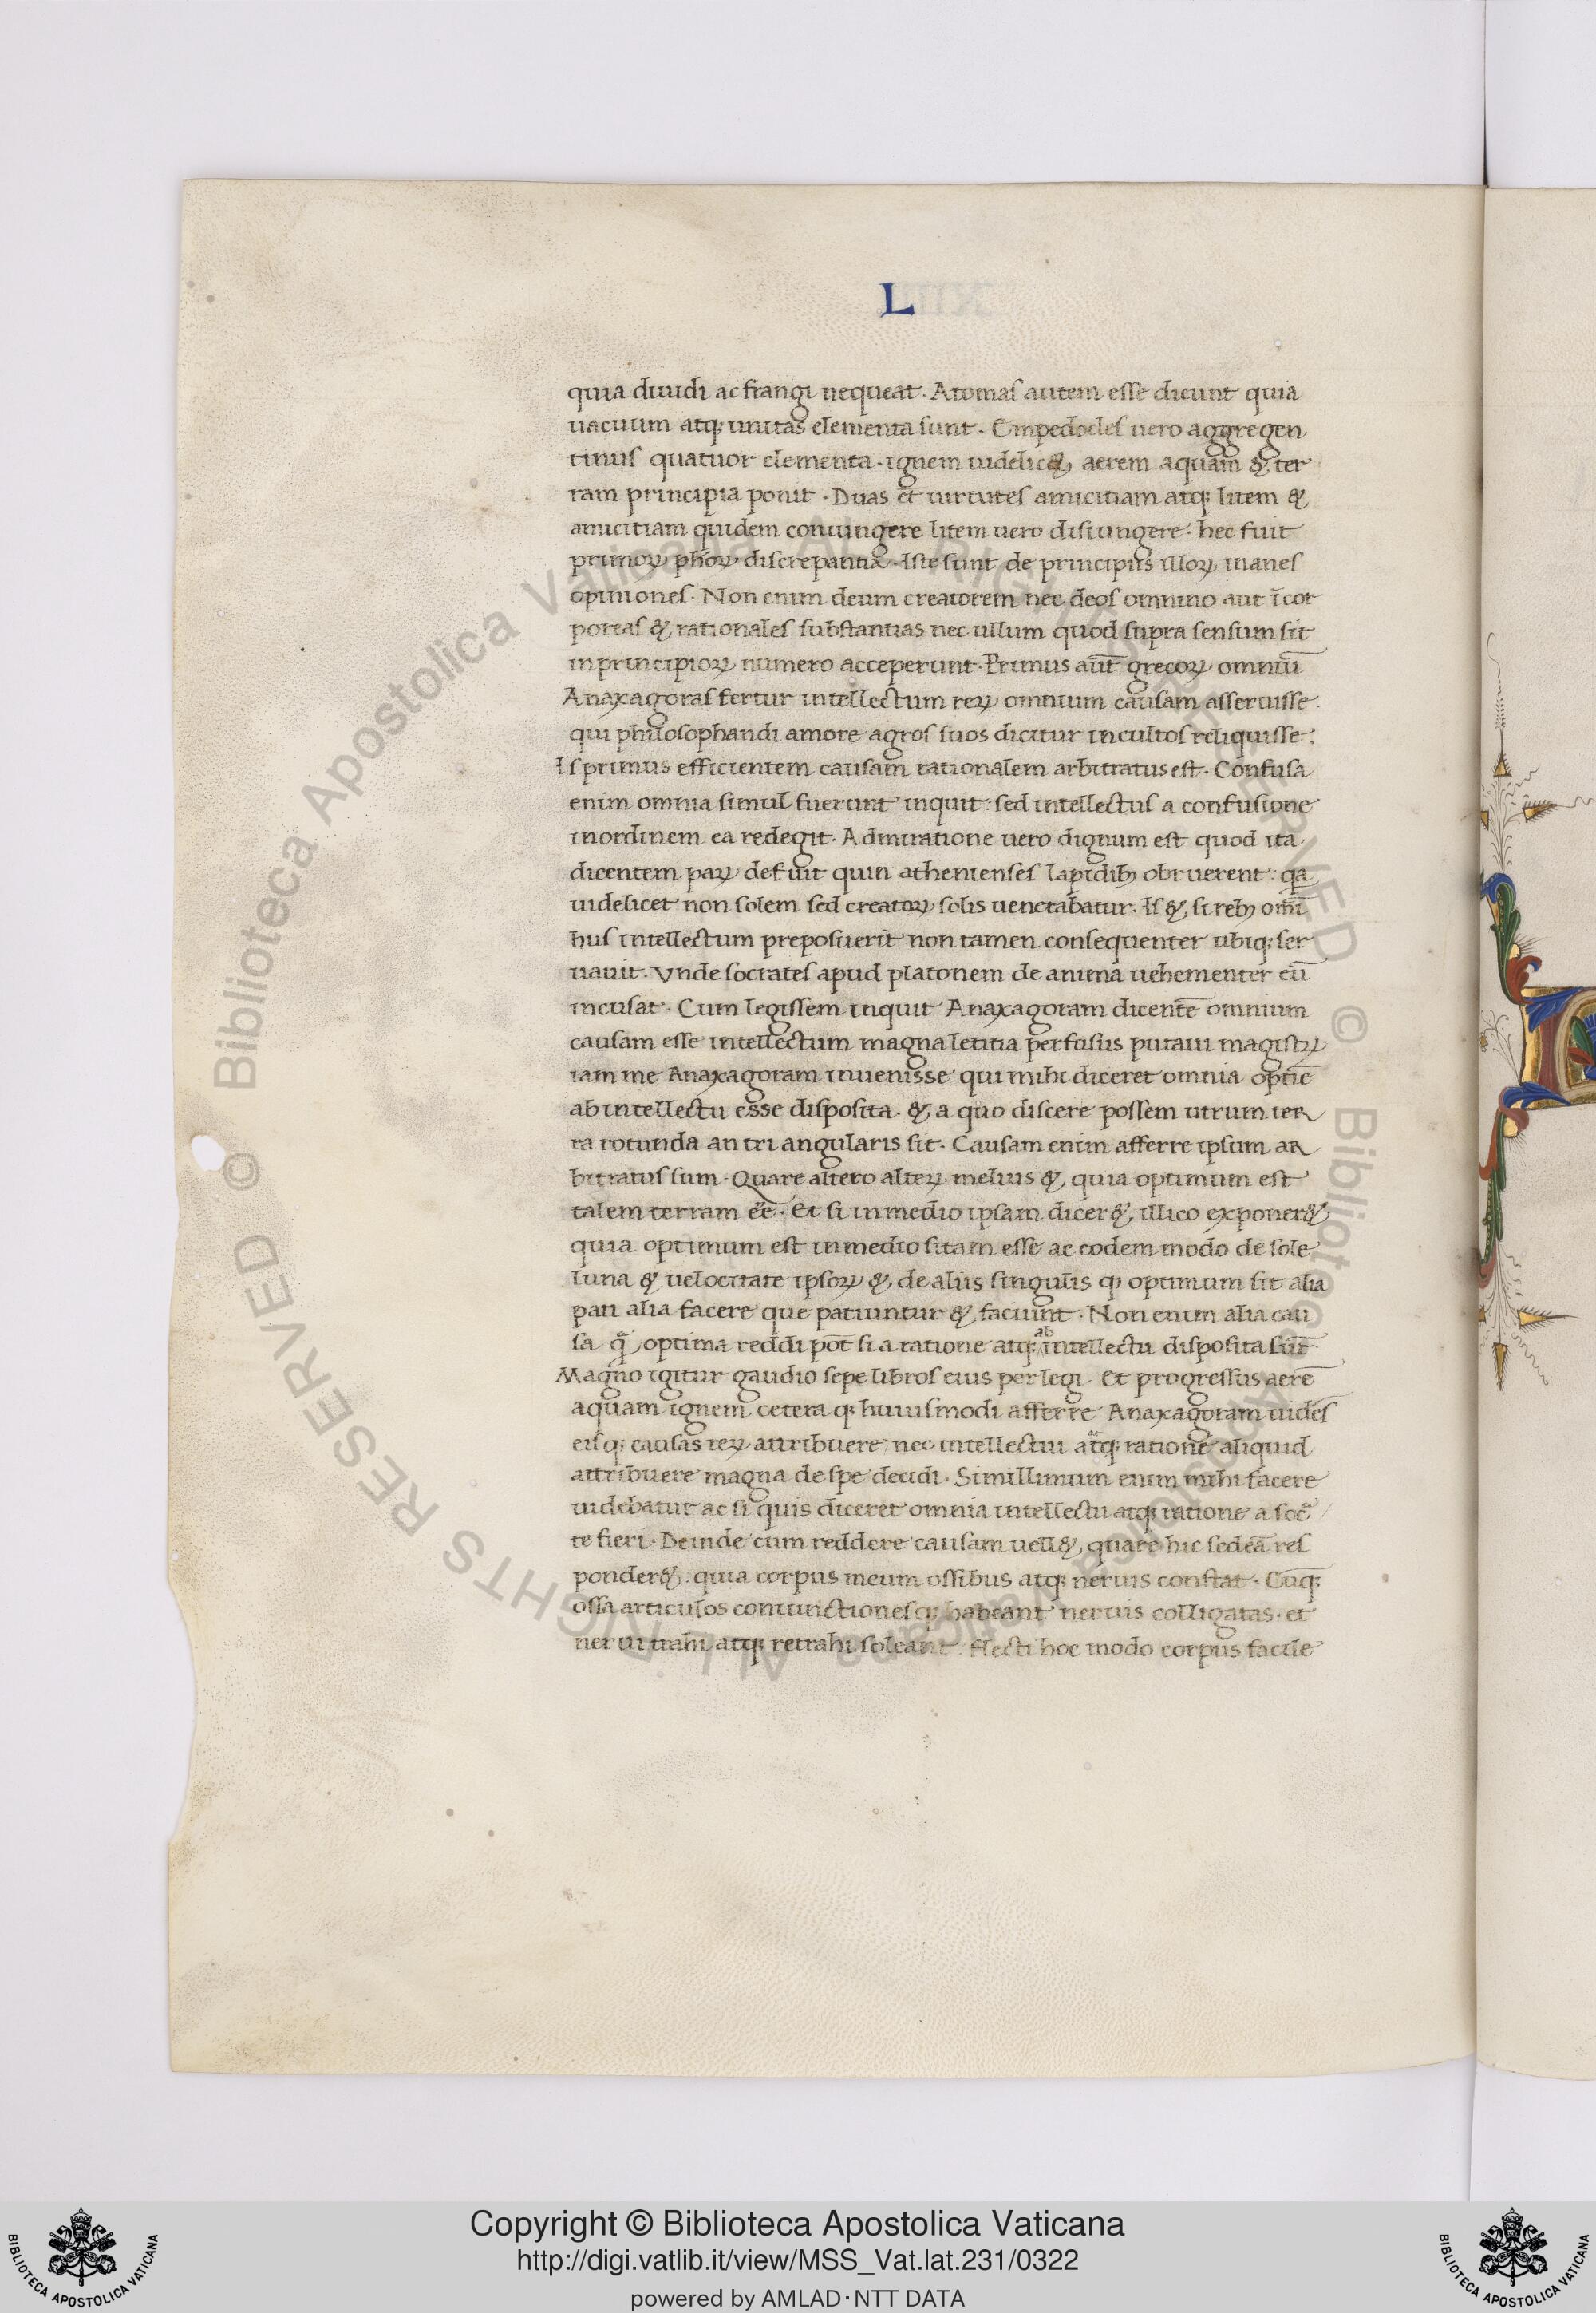 L
quia diuidi ac frangi nequeat. Atomas autem esse dicunt quia
uacuum atq; unitas elementa sunt. Empedocles uero aggregen
tinus quatuor elementa. ignem uidelic&, aerem aquam & ter
ram principia ponit. Duas et uirtutes amicitiam atq; litem &
amicitiam quidem coniungere litem uero disiungere. hec fuit
primoꝝ phōꝝ discrepantia. Iste sunt de principiis illoꝝ inanes
opiniones. Non enim deum creatorem nec deos omnino aut ĩcor
poreas & rationales substantias nec ullum quod supra sensum sit
in principioꝝ numero acceperunt. Primus aūt grecoꝝ omniū
Anaxagoras fertur intellectum reꝝ omnium causam asseruisse.
qui philosophandi amore agros suos dicitur incultos reliquisse.
Is primus efficientem causam rationalem arbitratus est. Confusa
enim omnia simul fuerunt inquit: sed intellectus a confusione
in ordinem ea redegit. Admiratione uero dignum est quod ita
dicentem paꝝ defuit quin athenienses lapidibꝫ obruerent: qa
uidelicet non solem sed creatoꝝ solis uenerabatur. Is & si rebꝫ omī
bus intellectum preposuerit non tamen consequenter ubiq; ser
uauit. Vnde socrates apud platonem de anima uehementer eū
incusat. Cum legissem inquit Anaxagoram dicentē omnium
causam esse intellectum magna letitia perfusus putaui magistꝝ
iam me Anaxagoram inuenisse qui mihi diceret omnia optīe
ab intellectu esse disposita. & a quo discere possem utrum ter
ra rotunda an triangularis sit. Causam enim afferre ipsum ar
bitratus sum. Quare altero alteꝝ melius & quia optimum est
talem terram eē. Et si in medio ipsam dicer& illico exponer&
quia optimum est in medio sitam esse ac eodem modo de sole
luna & uelocitate ipsoꝝ & de aliis singulis qꝫ optimum sit alia
pati alia facere que patiuntur & faciunt. Non enim alia cau
sa q̃ optima reddi pōt si a ratione atq; ab intellectu disposita sūt
Magno igitur gaudio sepe libros eius perlegi. Et progressus aerē
aquam ignem cetera q; huiusmodi afferre Anaxagoram uidēs
eisq; causas reꝝ attribuere, nec intellectui atq; ratione aliquid
attribuere magna de spe decidi. Simillimum enim mihi facere
uidebatur ac si quis diceret omnia intellectu atq; ratione a socᵃ
te fieri. Deinde cum reddere causam uell& quare hic sedeā res
ponder&: quia corpus meum ossibus atq; neruis constat. Cūq;
ossa articulos coniunctionesq; habeant neruis colligatas. et
nerui trahi atq; retrahi soleant. flecti hoc modo corpus facile
Copyright © Biblioteca Apostolica Vaticana
http://digi.vatlib.it/view/MSS_Vat.lat.231/0322
powered by AMLAD·NTT DATA